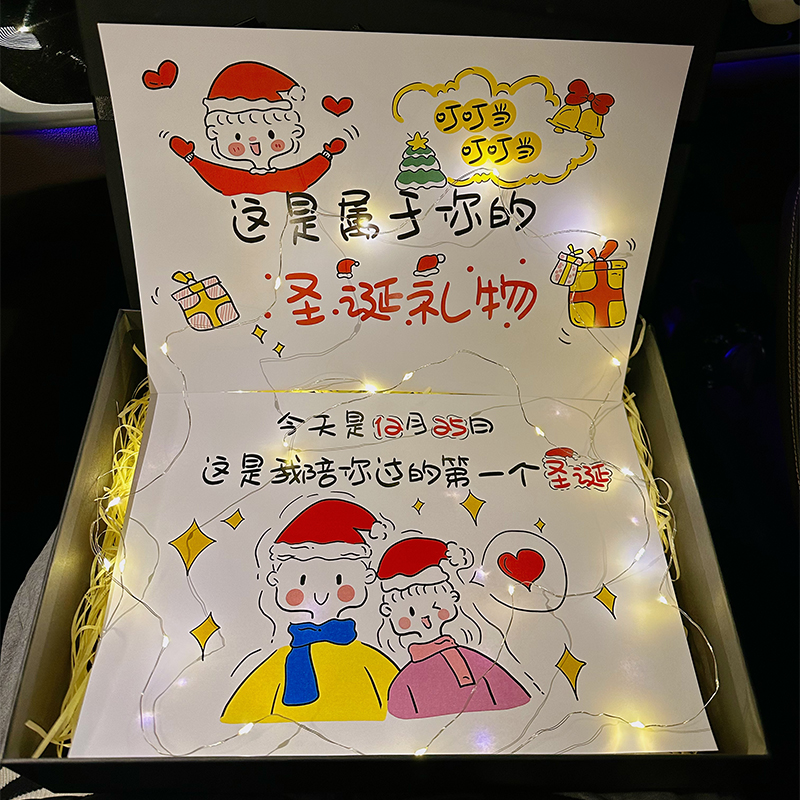 叮叮当
叮叮当
这是属于你的
圣诞礼物
今天是12月25日
这是我陪你过的第一个圣诞